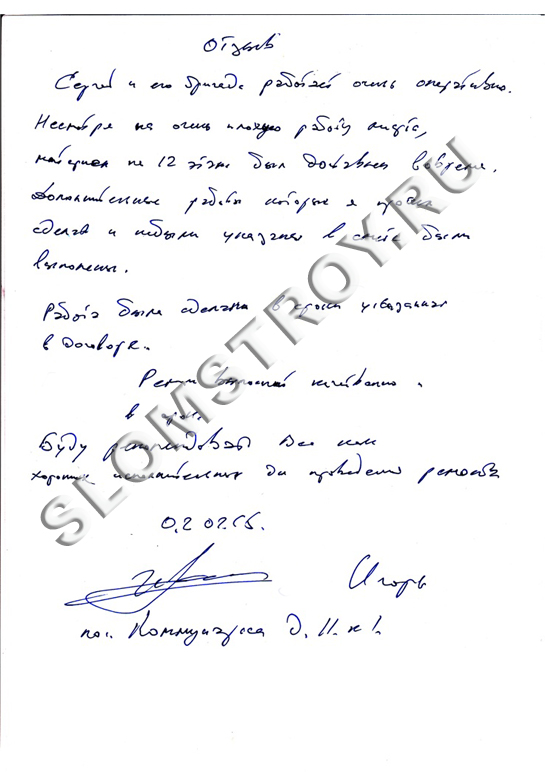 Отзыв
Сергей и его бригада работает очень оперативно.
Несмотря на очень плохую работу лифта,
материал на 12 этаж был доставлен вовремя.
Дополнительные работы которые я просил
сделать и небыли указаны в смете были
выполнены.
Работа была сделана в сроки указанные
в Договоре.
Ремонт выполнен качественно и
в срок.
Буду рекомендовать Вас как
хороших исполнителей для проведения ремонта
Игорь
пос. Коммунарка д. 11. к 1.
SLOMSTROY.RU